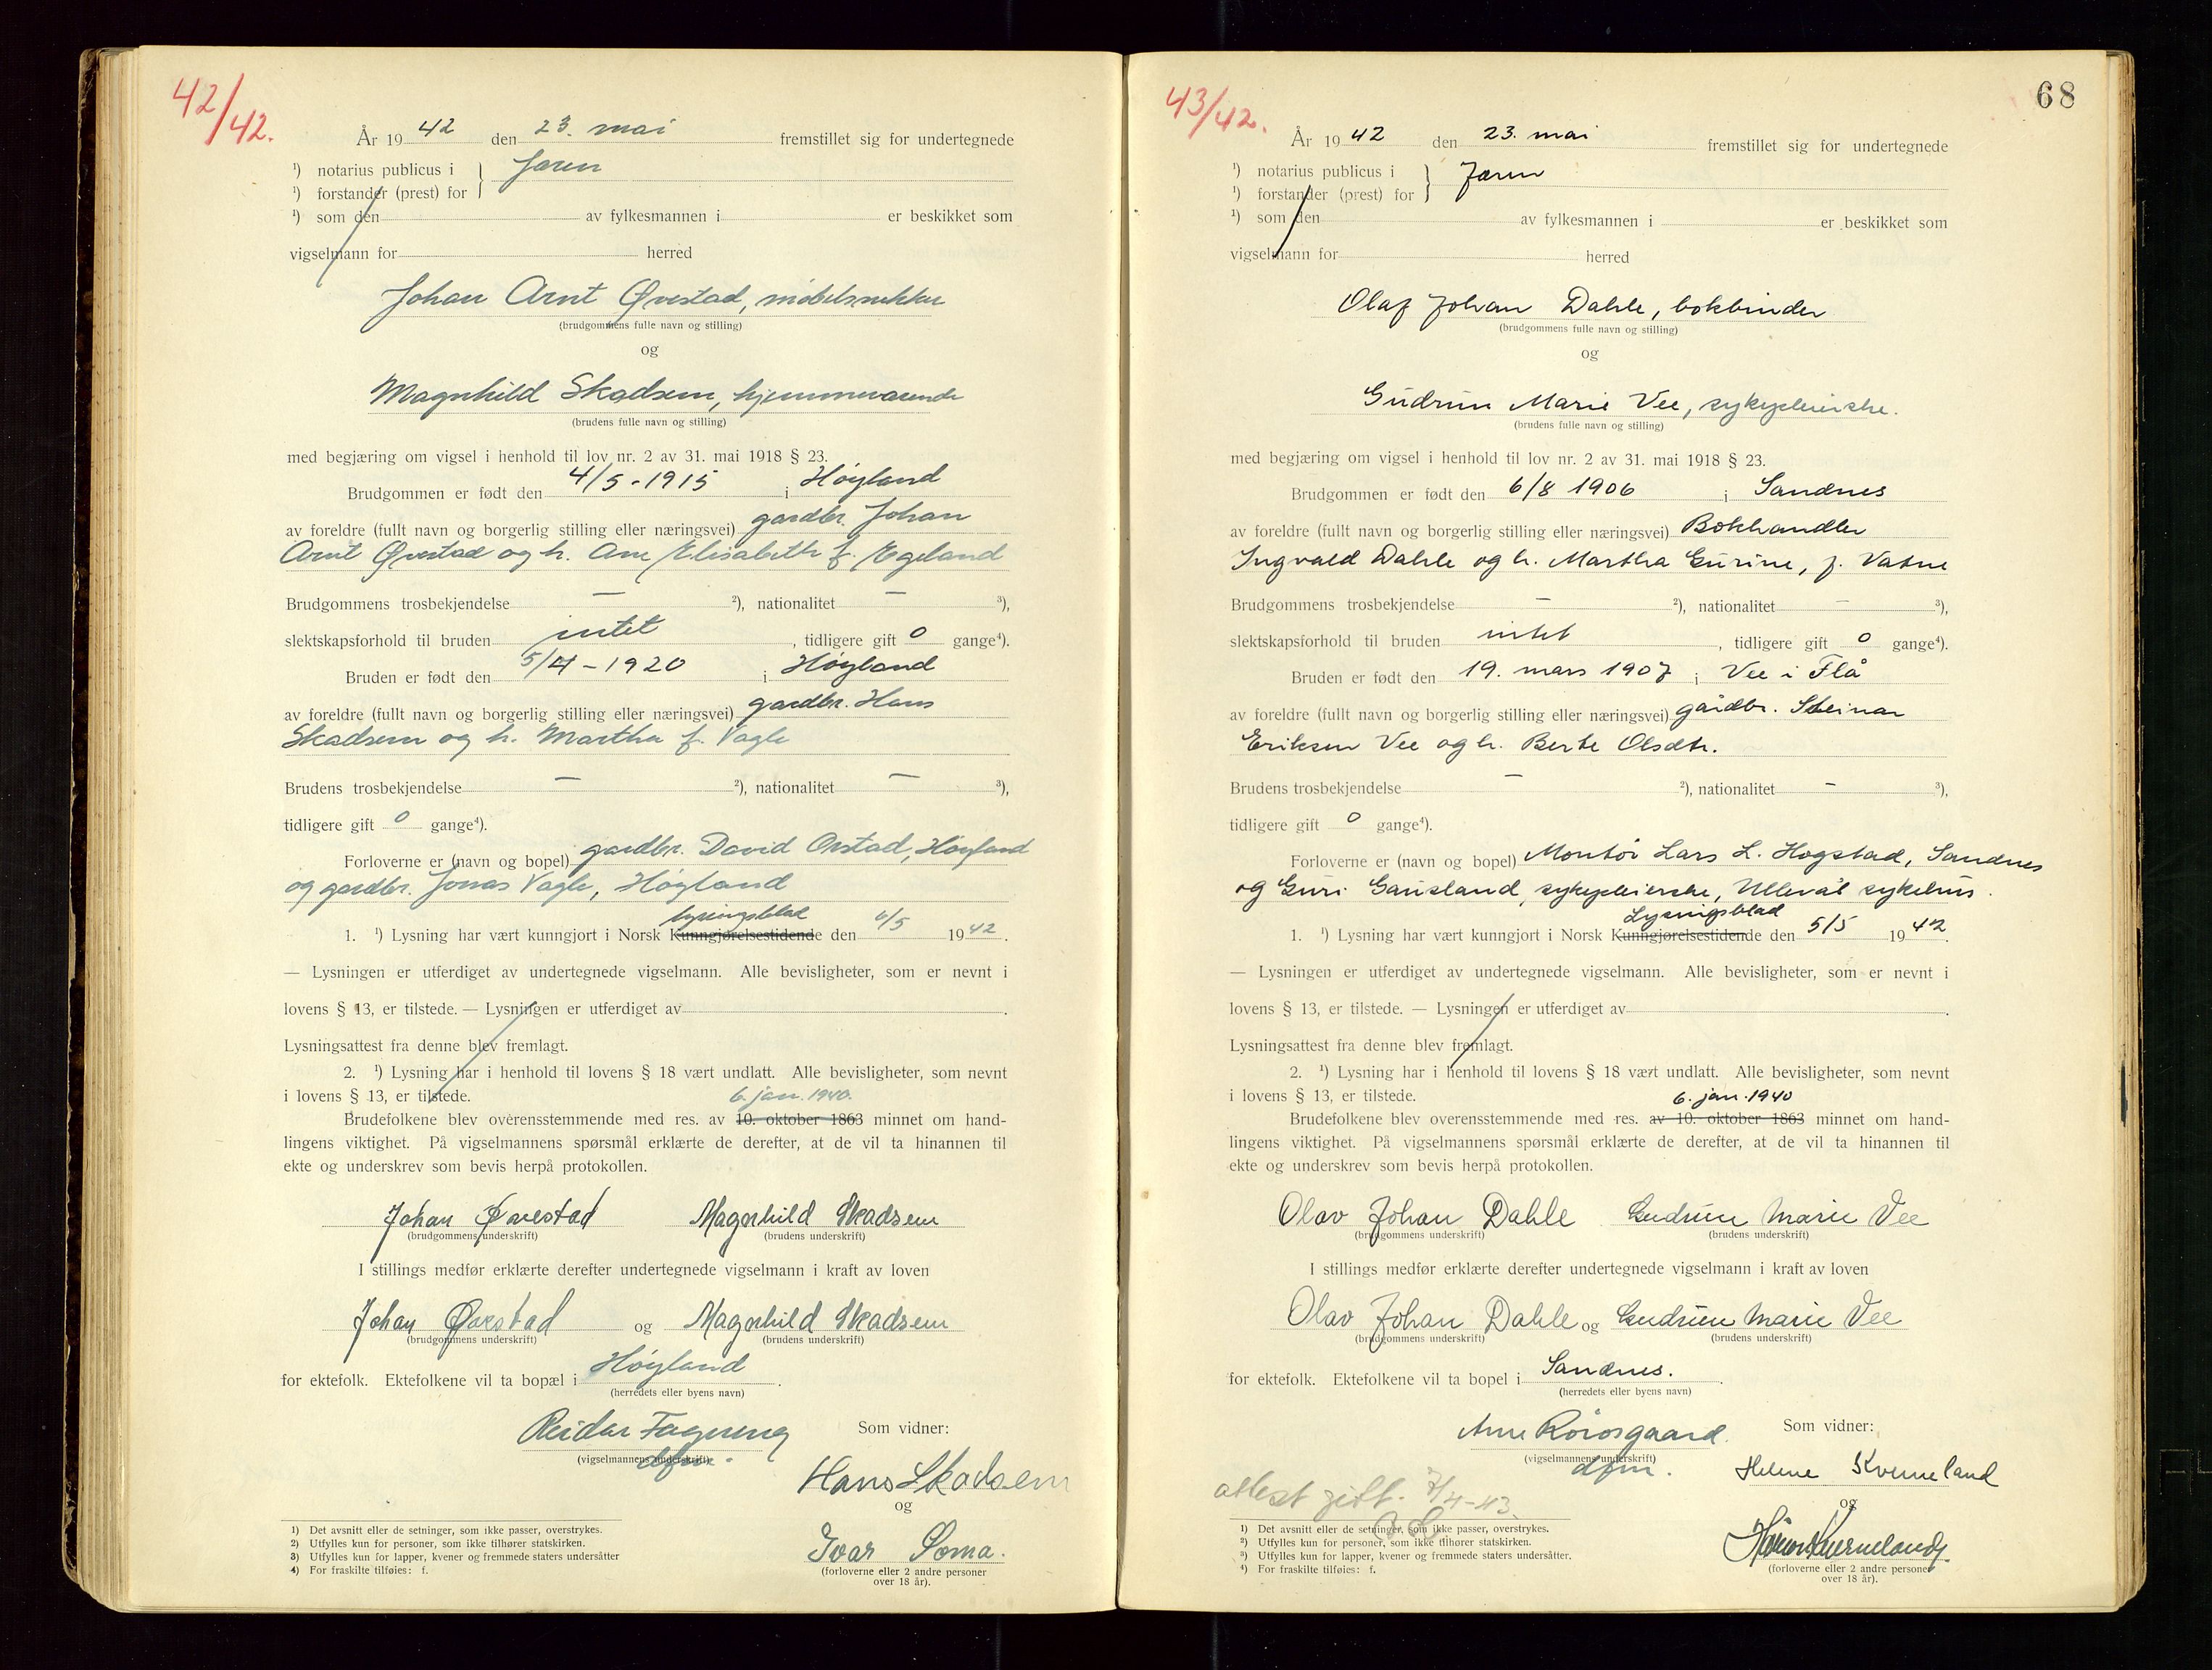 42/42.
År 1942 den 23. mai fremstillet sig for undertegnede
1) notarius publicus i } Jæren
1) forstander (prest) for
1) som den av fylkesmannen i er beskikket som
vigselmann for herred
Johan Arnt Øvestad, møbelsnekker
(brudgommens fulle navn og stilling)
og
Magnhild Skadsem, hjemmeværende
(brudens fulle navn og stilling)
med begjæring om vigsel i henhold til lov nr. 2 av 31. mai 1918 § 23.
Brudgommen er født den 4/5 - 1915 i Høyland
av foreldre (fullt navn og borgerlig stilling eller næringsvei) gardbr. Johan
Arnt Øvestad og h. Ane Elisabeth f. Egeland
Brudgommens trosbekjendelse — 2), nationalitet — 3),
slektskapsforhold til bruden intet, tidligere gift 0 gange4).
Bruden er født den 5/4 - 1920 i Høyland
av foreldre (fullt navn og borgerlig stilling eller næringsvei) gardbr. Hans
Skadsem og h. Martha f. Vagle
Brudens trosbekjendelse — 2), nationalitet — 3),
tidligere gift 0 gange4).
Forloverne er (navn og bopel) gardbr. David Orstad, Høyland
og gardbr. Jonas Vagle, Høyland
lysningsblad
1. 1) Lysning har vært kunngjort i Norsk Kunngjørelsestidende den 6/5 1942.
— Lysningen er utferdiget av undertegnede vigselmann. Alle bevisligheter, som er nevnt i
lovens § 13, er tilstede. — Lysningen er utferdiget av .
Lysningsattest fra denne blev fremlagt.
2. 1) Lysning har i henhold til lovens § 18 vært undlatt. Alle bevisligheter, som nevnt
i lovens § 13, er tilstede. 6. jan. 1940.
Brudefolkene blev overensstemmende med res. av 10. oktober 1863 minnet om hand-
lingens viktighet. På vigselmannens spørsmål erklærte de derefter, at de vil ta hinannen til
ekte og underskrev som bevis herpå protokollen.
Johan Øvestad Magnhild Skadsem
(brudgommens underskrift) (brudens underskrift)
I stillings medfør erklærte derefter undertegnede vigselmann i kraft av loven
Johan Øvestad og Magnhild Skadsem
(brudgommens underskrift) (brudens underskrift)
for ektefolk. Ektefolkene vil ta bopæl i Høyland.
(herredets eller byens navn)
Reidar Som vidner:
(vigselmannens underskrift)
dfm.
Hans Skadsem
og
Ivar Soma.
(forloverne eller 2 andre personer
over 18 år).
1) Det avsnitt eller de setninger, som ikke passer, overstrykes.
2) Utfylles kun for personer, som ikke tilhører statskirken.
3) Utfylles kun for lapper, kvener og fremmede staters undersåtter
4) For fraskilte tilføies: f.
43/42.
68
År 1942 den 23. mai fremstillet sig for undertegnede
1) notarius publicus i } Jæren
1) forstander (prest) for
1) som den av fylkesmannen i er beskikket som
vigselmann for herred
Olaf Johan Dahle, bokbinder
(brudgommens fulle navn og stilling)
og
Gudrun Marie Vee, sykepleierske.
(brudens fulle navn og stilling)
med begjæring om vigsel i henhold til lov nr. 2 av 31. mai 1918 § 23.
Brudgommen er født den 6/8 1906 i Sandnes
av foreldre (fullt navn og borgerlig stilling eller næringsvei) Bokhandler
Ingvald Dahle og h. Martha Gurine, f. Vatne
Brudgommens trosbekjendelse — 2), nationalitet — 3),
slektskapsforhold til bruden intet, tidligere gift 0 gange4).
Bruden er født den 19. mars 1907 i Vee i Flå
av foreldre (fullt navn og borgerlig stilling eller næringsvei) gårdbr. Steinar
Eriksen Vee og h. Berte Olsdtr.
Brudens trosbekjendelse — 2), nationalitet — 3),
tidligere gift 0 gange4).
Forloverne er (navn og bopel) Montør Lars L. Hogstad, Sandnes
og Guri Gausland, sykepleierske, Ullevål sykehus.
Lysningsblad
1. 1) Lysning har vært kunngjort i Norsk Kunngjørelsestidende den 5/5 1942.
— Lysningen er utferdiget av undertegnede vigselmann. Alle bevisligheter, som er nevnt i
lovens § 13, er tilstede. — Lysningen er utferdiget av .
Lysningsattest fra denne blev fremlagt.
2. 1) Lysning har i henhold til lovens § 18 vært undlatt. Alle bevisligheter, som nevnt
i lovens § 13, er tilstede. 6. jan. 1940
Brudefolkene blev overensstemmende med res. av 10. oktober 1863 minnet om hand-
lingens viktighet. På vigselmannens spørsmål erklærte de derefter, at de vil ta hinannen til
ekte og underskrev som bevis herpå protokollen.
Olav Johan Dahle Gudrun Marie Vee
(brudgommens underskrift) (brudens underskrift)
I stillings medfør erklærte derefter undertegnede vigselmann i kraft av loven
Olav Johan Dahle og Gudrun Marie Vee
(brudgommens underskrift) (brudens underskrift)
for ektefolk. Ektefolkene vil ta bopel i Sandnes.
(herredets eller byens navn)
Arne Rorosgaard. Som vidner:
(vigselmannens underskrift)
dfm.
Helene Kverneland
attest gitt. 7/4-43.
og
Kverneland
(forloverne eller 2 andre personer
over 18 år).
1) Det avsnitt eller de setninger, som ikke passer, overstrykes.
2) Utfylles kun for personer, som ikke tilhører statskirken.
3) Utfylles kun for lapper, kvener og fremmede staters undersåtter.
4) For fraskilte tilføies: f.